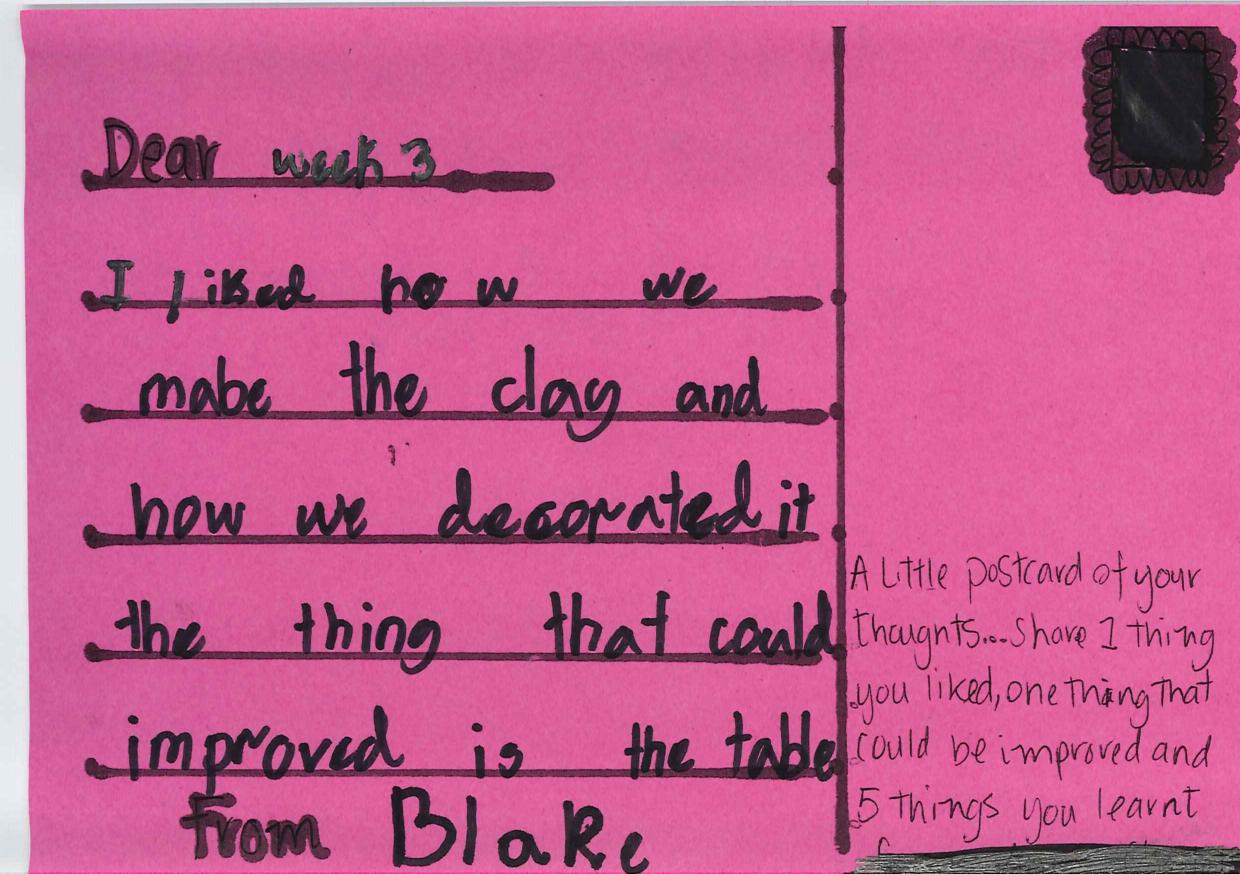 Dear week 3
I liked how we
mabe the clay and
how we decorated it
the thing that could
improved is the table
From Blake
A Little postcard of your
thoughts...Share 1 thing
you liked, one thing that
could be improved and
5 things you learnt